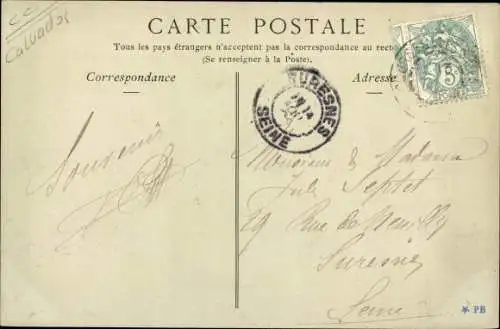 CC
Calvados
CARTE POSTALE
Tous les pays étrangers n'acceptent pas la correspondance au recto
(Se renseigner à la Poste).
Correspondance
Adresse
SURESNES
SEINE
5
Souvenir
Monsieur & Madame
Jules Septet
29 Rue de Neuilly
Suresnes
Seine
* PB